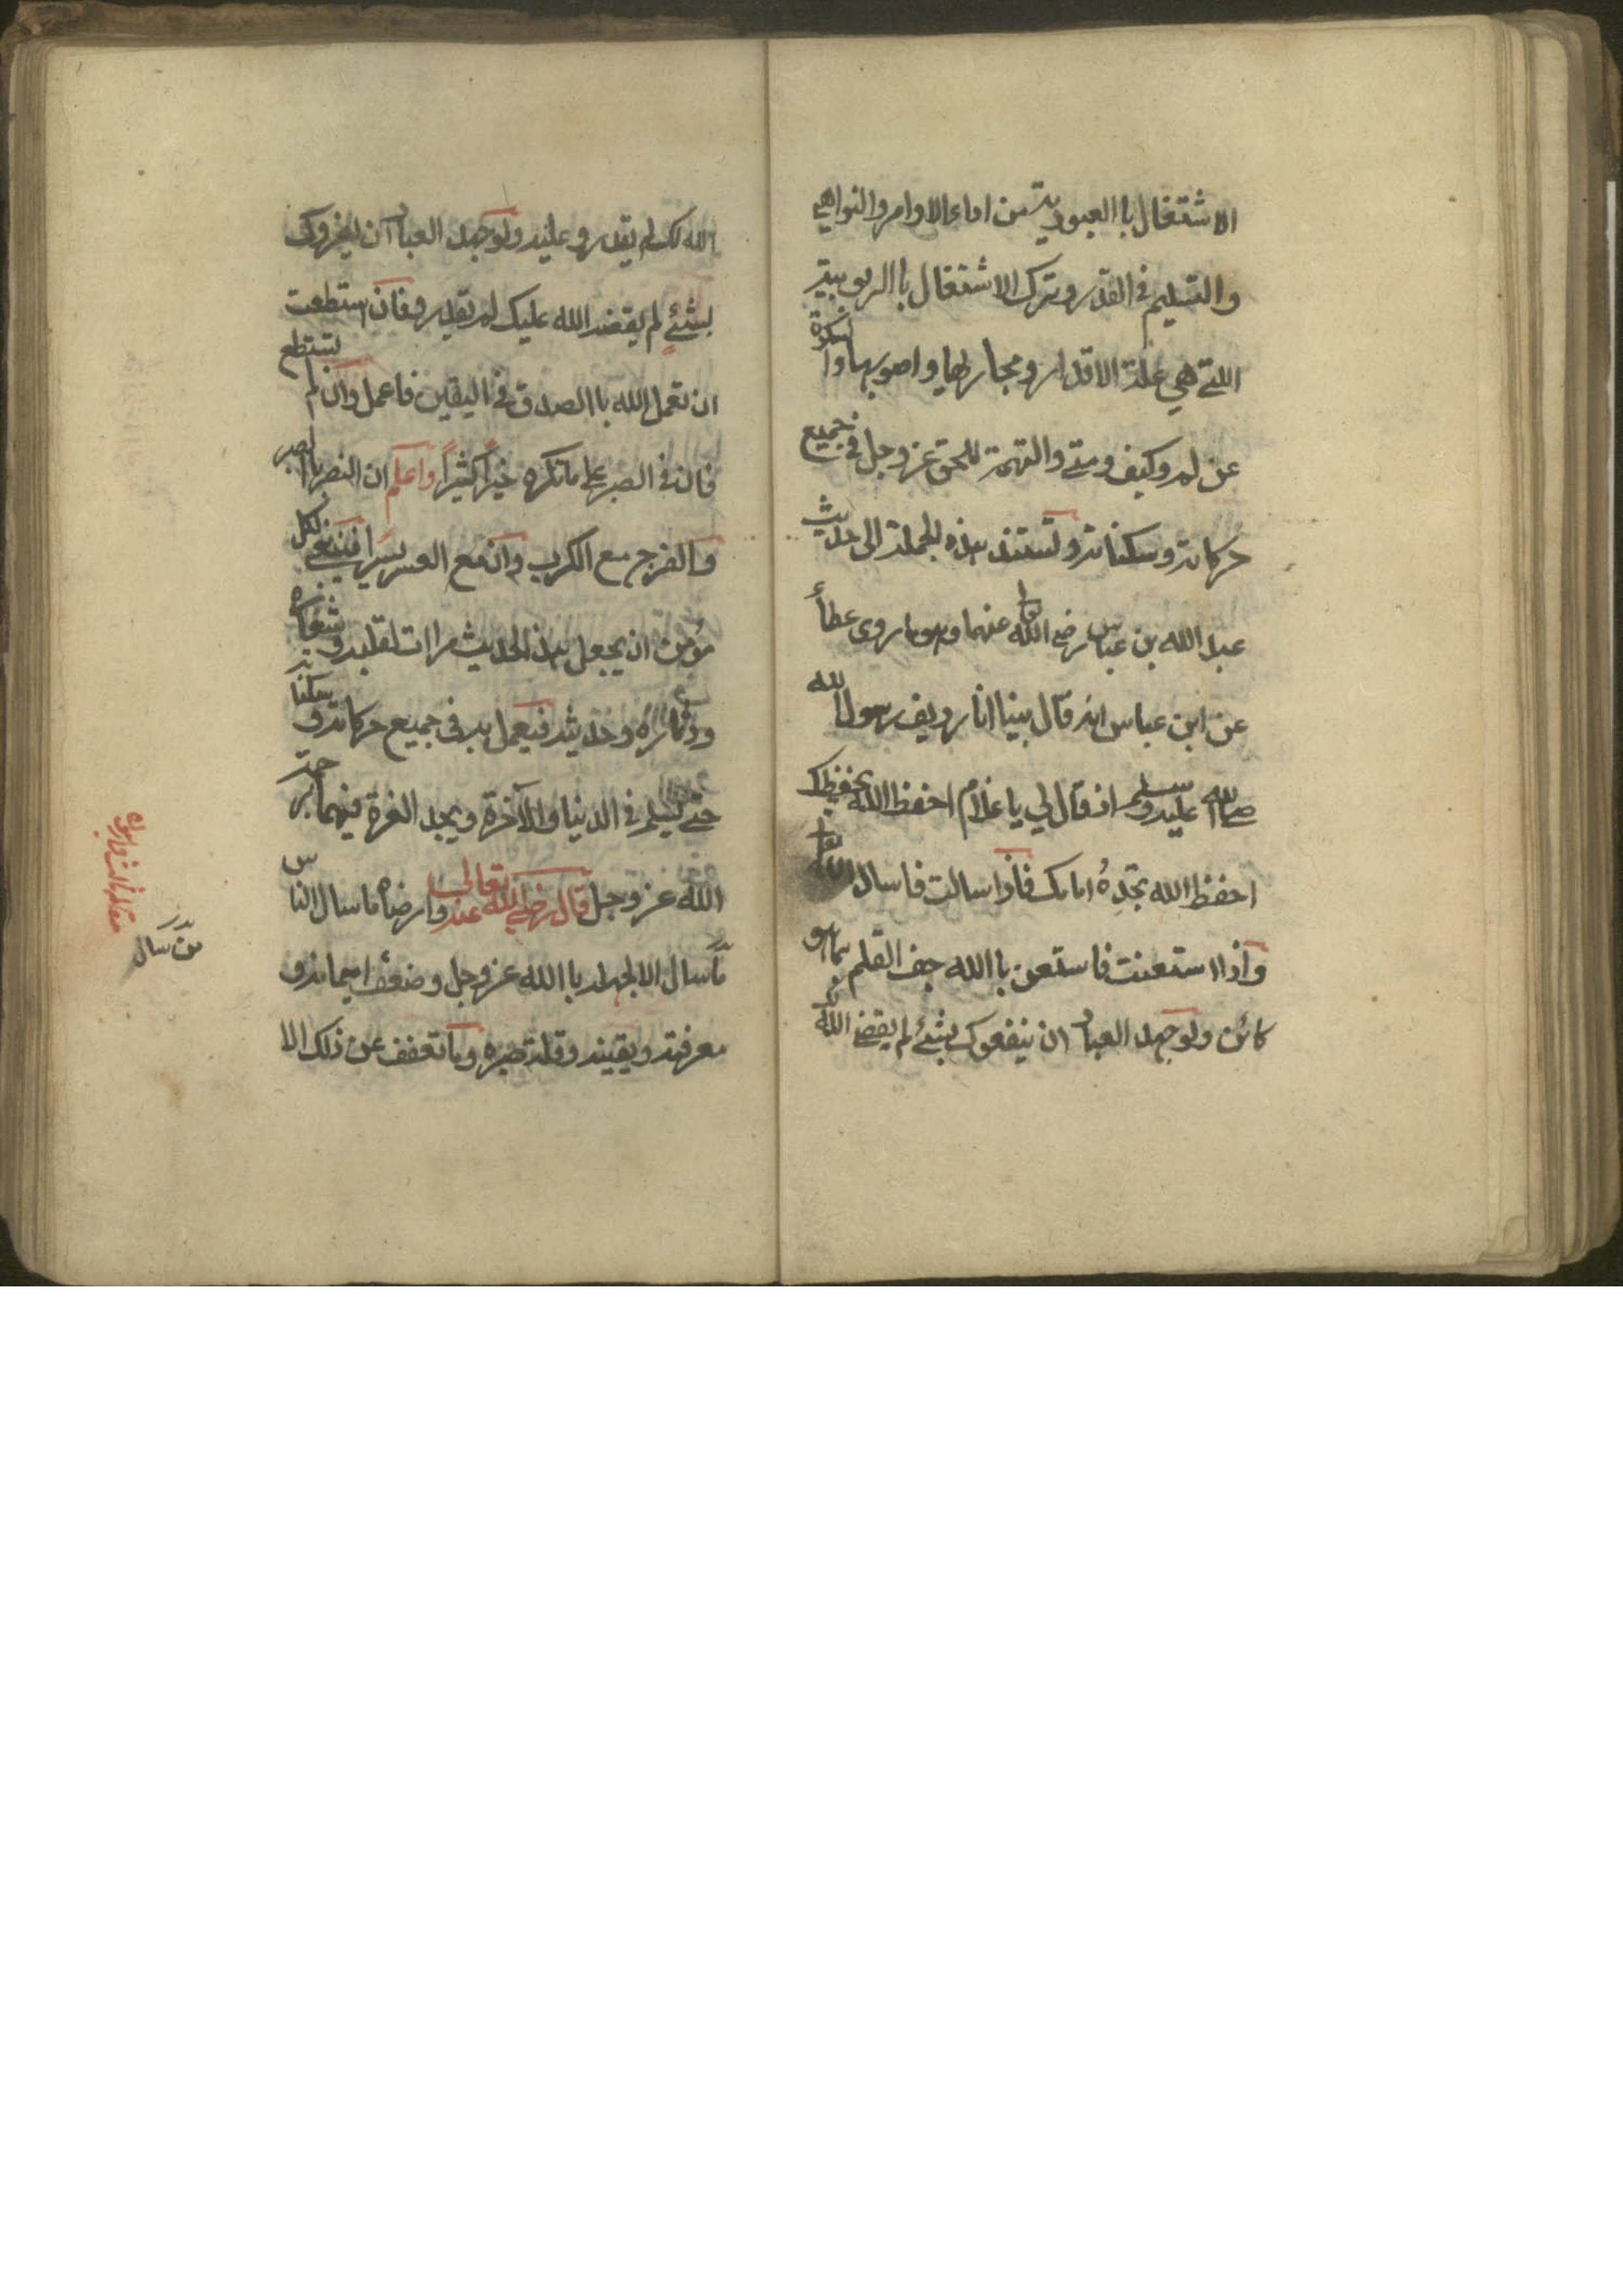 الاشتغال باالعبودية من اداء الاوامر والنواهي
والتسليم في القدر وترك الاشتغال باالربوبية
اللتي هي علة الاقدار ومجاريها واصوبها والسكوة
عن لم وكيف ومتى والتهمة للحق عز وجل في جميع
حركاته وسكناته وتستند هذه الجملة الى حديث
عبد الله بن عباس رضى الله تعا عنهما وهو ما روى عطأ
عن ابن عباس انه قال بينا انا رديف رسول الله
صلى الله عليه وسلم اذ قال لي يا غلام احفظ الله يحفظك
احفظ الله تجده امامك فاذا سالت فاسال الله
واذا استعنت فاستعن باالله جف القلم بما هو
كائن ولو جهد العباد ان ينفعوك بشئ لم يقضى الله
الله لك لم يقدرو عليه ولو جهد العباد ان يضروك
بشئ لم يقضه الله عليك لم يقدرو فان استطعت
ان تعمل الله باالصدق في اليقين فاعمل وان لم تستطع
فان في الصبر على ما تكره خيرا كثيرا واعلم ان النصر باالصبر
والفرج مع الكرب وان مع العسر يسرا فينبغي لكل
مؤمن ان يجعل هذا الحديث مرات لقلبه وشعاره
ودثاره وحديثه فيعمل به في جميع حركاته وسكناته
حتى يسلم في الدنيا والآخرة ويجد العزة فيهما برحمة
الله عز وجل قال رضي الله تعالى عنه وارضاه ما سال الناس
ما سال الا لجهله باالله عز وجل وضعف ايمانه و
معرفته ويقينه وقلة صبره وما تعفف عن ذلك الا
من سال